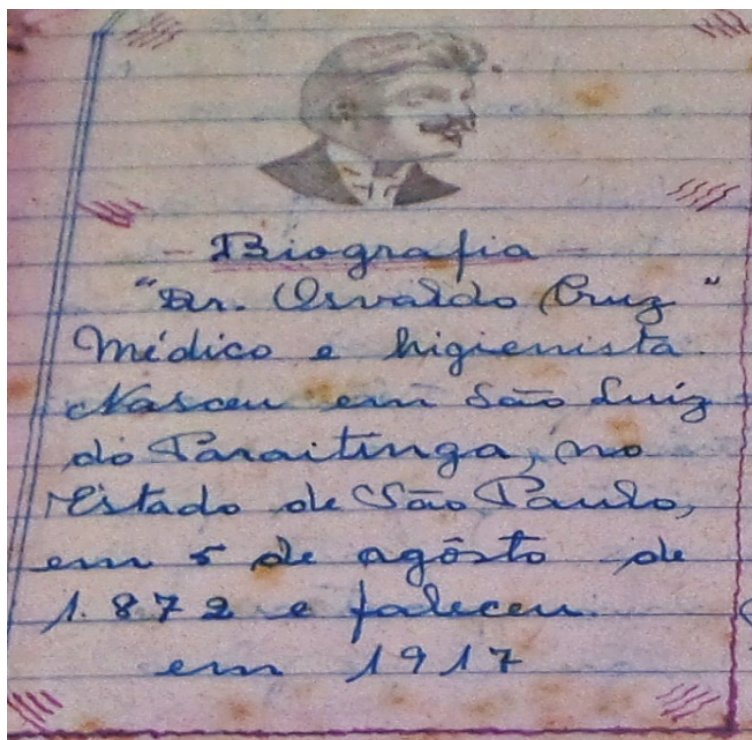 - Biografia -
"Dr. Osvaldo Cruz"
Médico e higienista.
Nasceu em São Luiz
do Paraitinga, no
Estado de São Paulo,
em 5 de agôsto de
1.872 e faleceu
em 1917